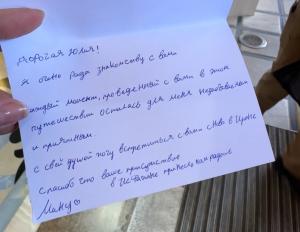 Дорогая Юлия!
я очень рада знакомству с вами
каждый момент, проведенный с вами в этом
путешествии остались для меня незабываем
и приятным.
с свой душой хочу встретиться с вами снова в
Спасиб что ваше присутствие
в Истанбуле принесло нам радость